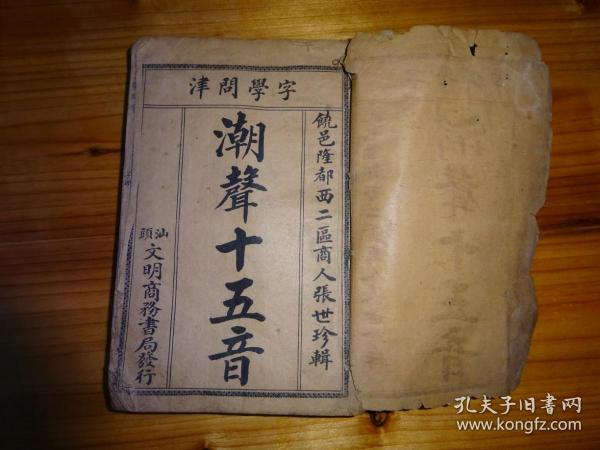 字學問津
饒邑隆都西二區商人張世珍輯
潮聲十五音
汕頭文明商務書局發行
孔夫子旧书网
www.kongfz.com